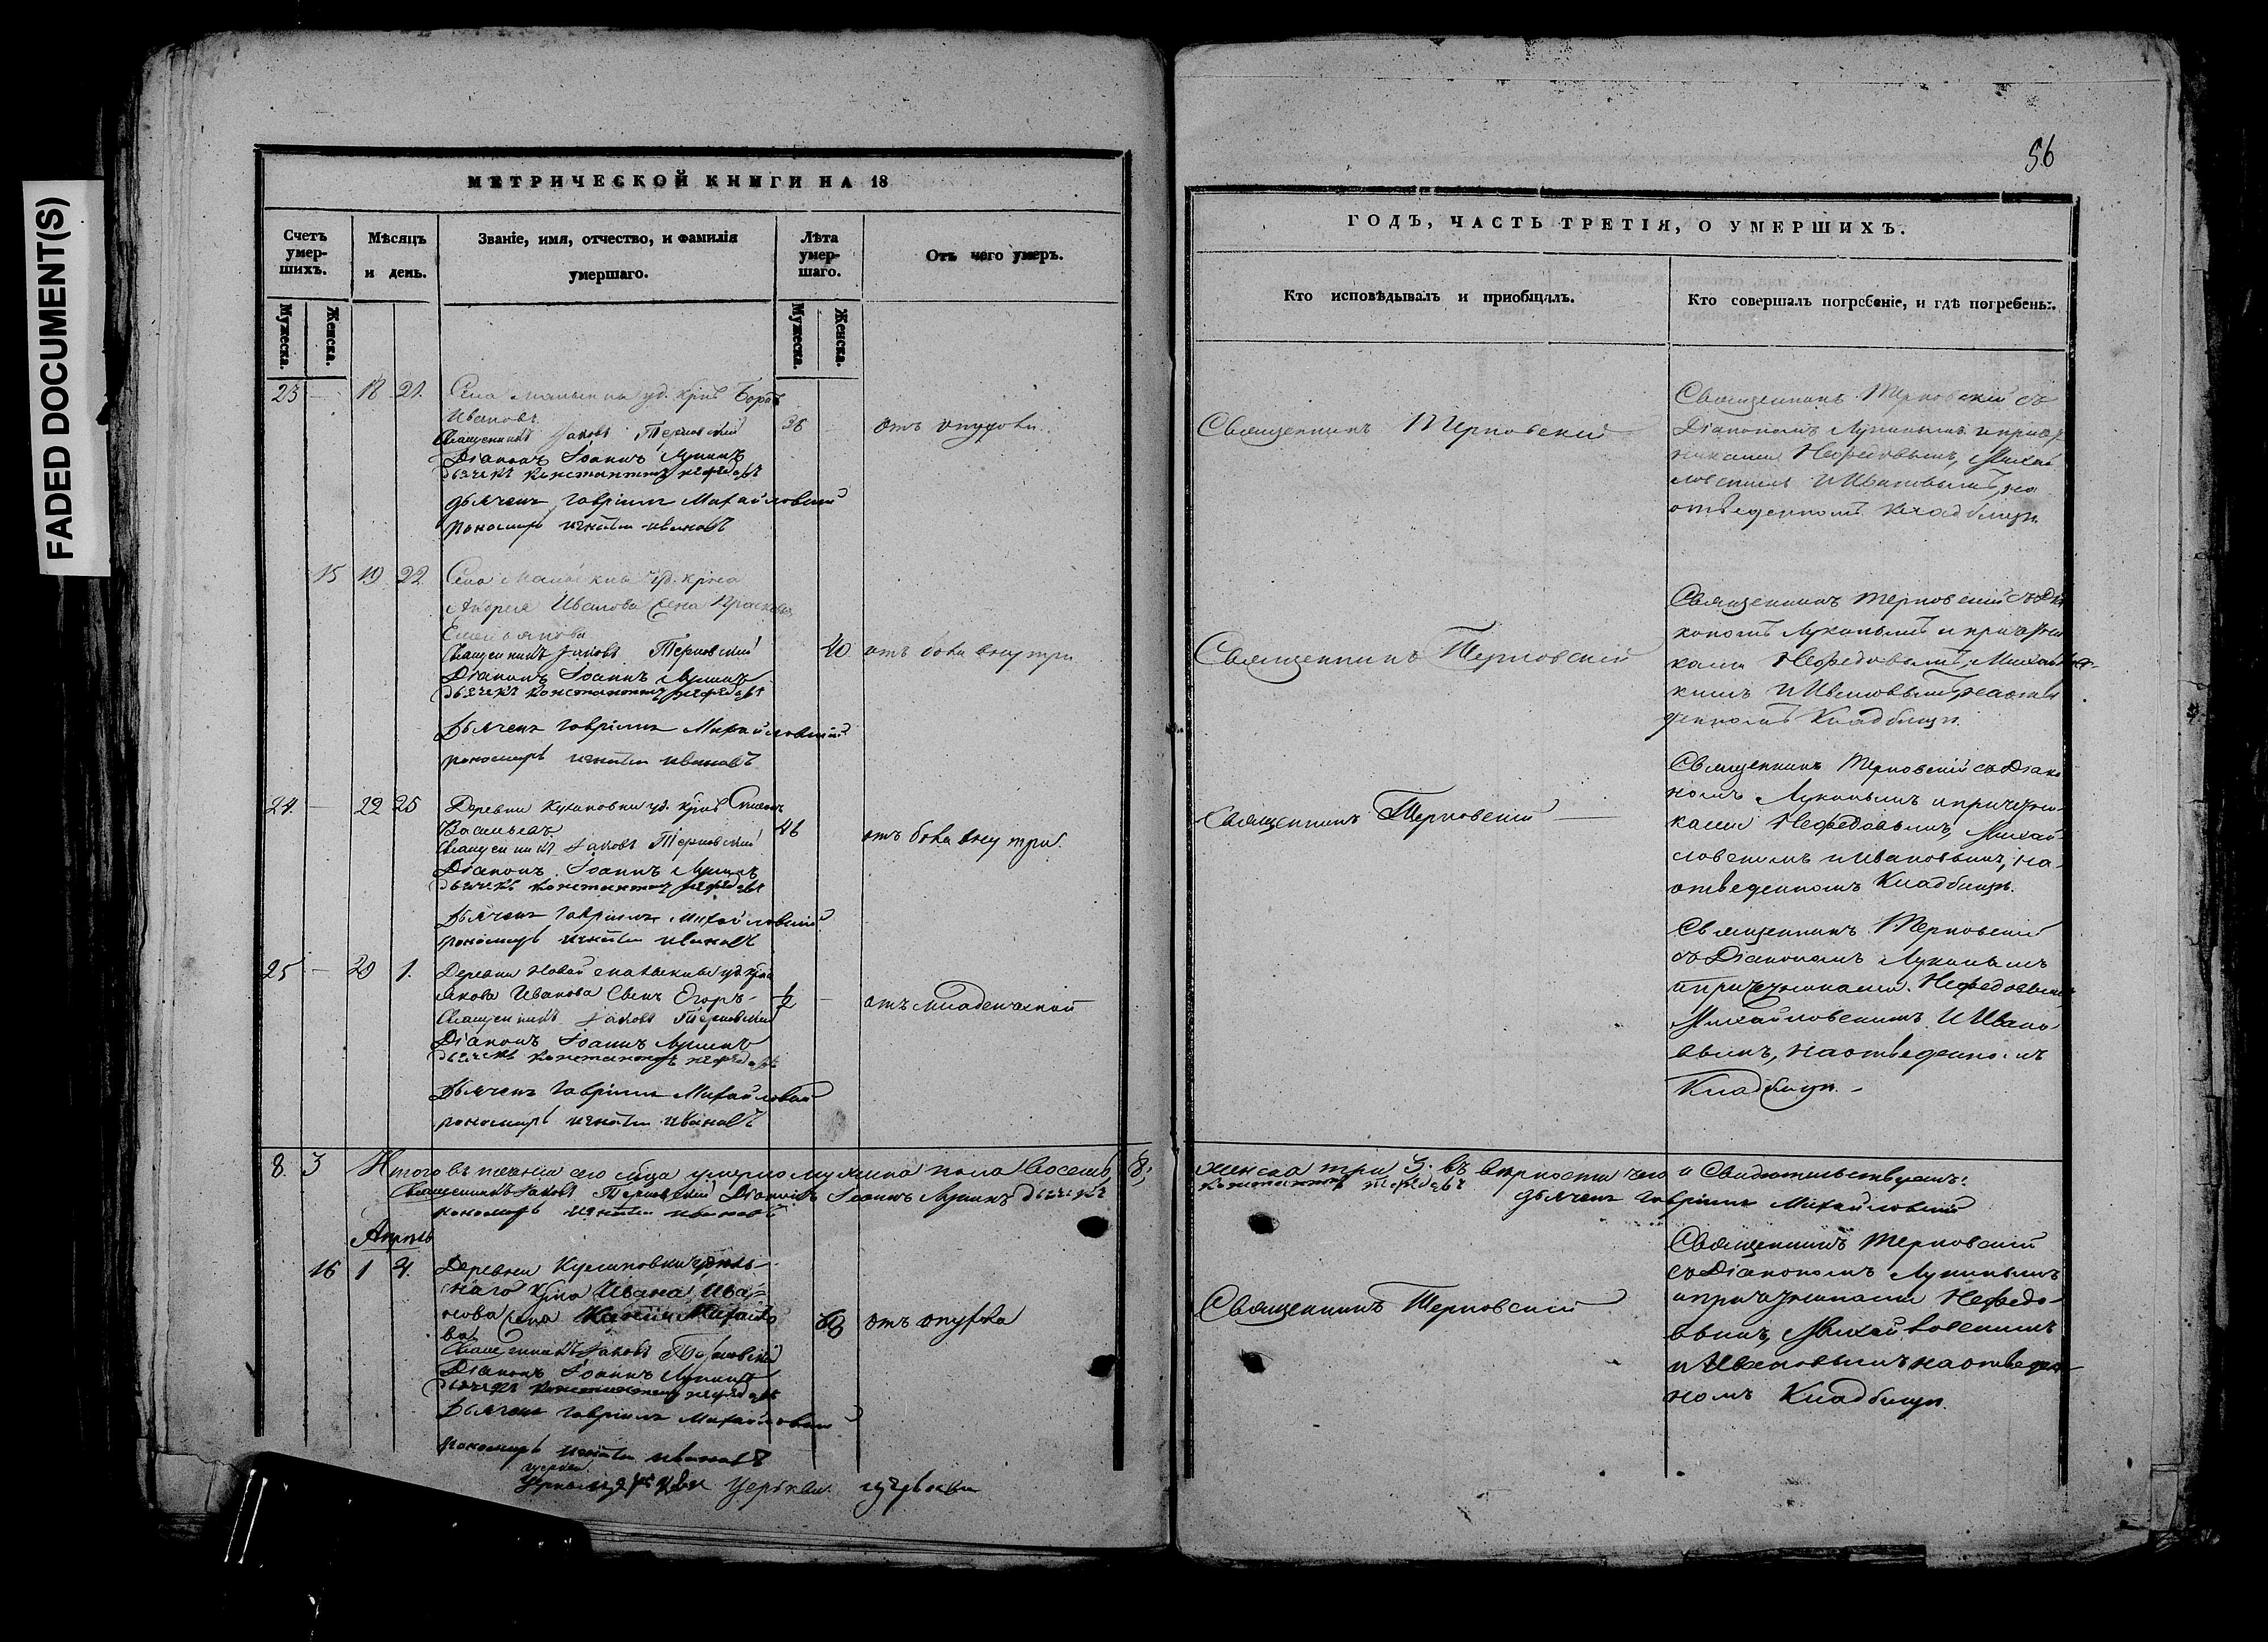 FADED DOCUMENT(S)
МЕТРИЧЕСКОЙ КНИГИ НА 18
Счетъ умер-шихъ.
Мужеска.
Женска.
Мѣсяцъ и день.
Званіе, имя, отчество, и фамилія умершаго.
Лѣта умер-шаго.
Мужеска.
Женска.
Отъ чего умеръ.
23 — 18 21. Села уд. крнъ
Ивановъ
36 — отъ опухоли
Священникъ Іаковъ Терновскій
Діаконъ Іоаннъ Лукинъ
дьячекъ Константинъ Нефедовъ
дьячекъ Гавріилъ Михайловскій
пономарь Игнатій Ивановъ
15 19 22 Села уд. крна
Андрея Иванова жена Прасковья
Емельянова
Священникъ Іаковъ Терновскій
40 отъ боли внутри
Діаконъ Іоаннъ Лукинъ
дьячекъ Константинъ Нефедовъ
дьячекъ Гавріилъ Михайловскій
пономарь Игнатій Ивановъ
24. — 22 25 Деревни уд. крнъ
Васильевъ
46 отъ боли внутри.
Священникъ Іаковъ Терновскій
Діаконъ Іоаннъ Лукинъ
дьячекъ Константинъ Нефедовъ
дьячекъ Гавріилъ Михайловскій
пономарь Игнатій Ивановъ
25 — 29 1. Деревни Новой уд. крна
Якова Иванова сынъ Егоръ
1/2 — отъ младенческой
Священникъ Іаковъ Терновскій
Діаконъ Іоаннъ Лукинъ
дьячекъ Константинъ Нефедовъ
дьячекъ Гавріилъ Михайловскій
пономарь Игнатій Ивановъ
8. 3 Итого въ теченіи сего мѣсяца умерло мужеска пола восемь 8,
Священникъ Іаковъ Терновскій Діаконъ Іоаннъ Лукинъ дьячекъ
пономарь Игнатій Ивановъ
Апрѣль
16 1 4. Деревни удѣль-
наго крна Ивана Ива-
нова жена
отъ опухоли
Священникъ Іаковъ Терновскій
Діаконъ Іоаннъ Лукинъ
дьячекъ Константинъ Нефедовъ
дьячекъ Гавріилъ Михайловскій
пономарь Игнатій Ивановъ
церкви
56
ГОДЪ, ЧАСТЬ ТРЕТІЯ, О УМЕРШИХЪ.
Кто исповѣдывалъ и пріобщалъ.
Кто совершалъ погребеніе, и гдѣ погребены.
Священникъ Терновскій
Священникъ Терновскій съ
Діакономъ Лукинымъ и причет
никами Нефедовымъ, Михай
ловскимъ и Ивановымъ, на
отведенномъ кладбищѣ
Священникъ Терновскій
Священникъ Терновскій съ Діа
кономъ Лукинымъ и причетни
ками Нефедовымъ, Михайловс-
кимъ и Ивановымъ, на отве
денномъ кладбищѣ.
Священникъ Терновскій —
Священникъ Терновскій съ Діако
номъ Лукинымъ и причетни-
ками Нефедовымъ, Михай-
ловскимъ и Ивановымъ, на
отведенномъ кладбищѣ.
Священникъ Терновскій
съ Діакономъ Лукинымъ
и причетниками Нефедовымъ
Михайловскимъ и Ивано
вымъ, на отведенномъ
кладбищѣ. —
женска три 3. въ вѣрности чего и свидѣтельствуемъ:
Константинъ Нефедовъ дьячекъ Гавріилъ Михайловскій
Священникъ Терновскій
Священникъ Терновскій
съ Діакономъ Лукинымъ
и причетниками Нефедо-
вымъ, Михайловскимъ
и Ивановымъ на отведен-
номъ кладбищѣ.